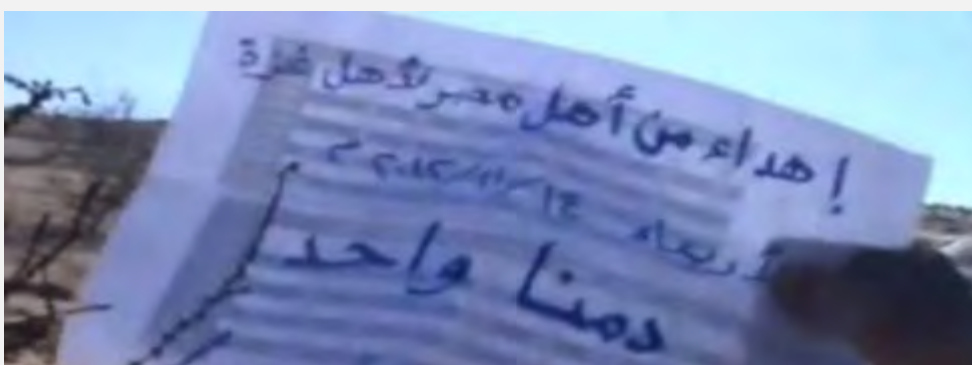 إهداء من أهل مصر لأهل غزة
أربعاء ١٤/١١/٢٠١٢ م
دمنا واحد